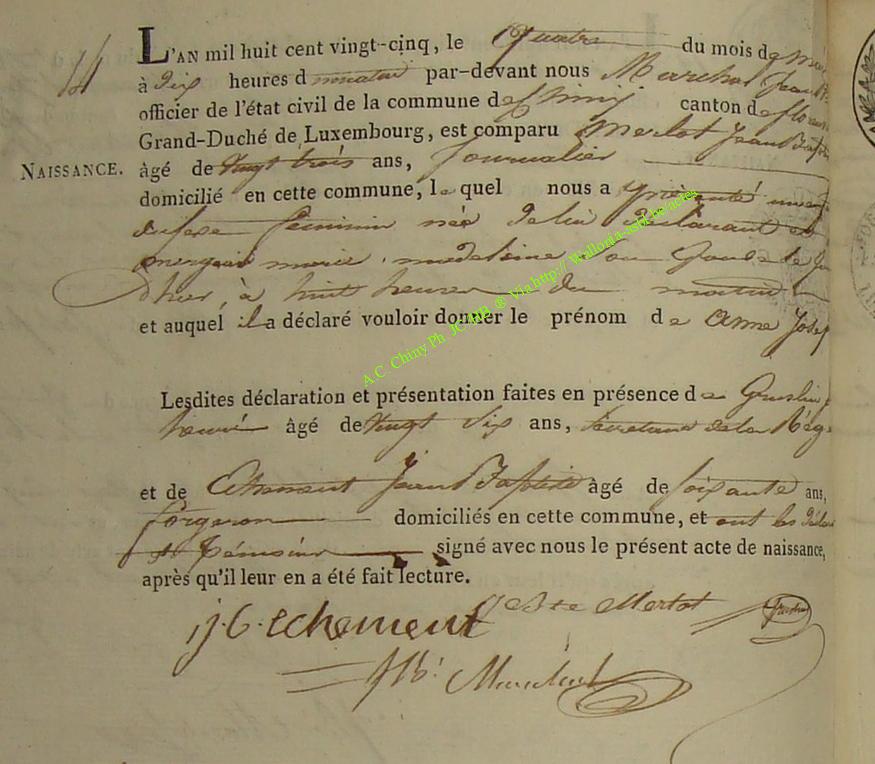 14
L'AN mil huit cent vingt-cinq, le quatre du mois de
à dix heures du matin par-devant nous Marchal Jean
officier de l'état civil de la commune de Chiny canton de
Grand-Duché de Luxembourg, est comparu Merlot Jean Bap
NAISSANCE.
âgé de vingt trois ans, journalier
domicilié en cette commune, lequel nous a présenté un
du sexe féminin née de lui déclarant et
marie madelaine
hier, à huit heures du matin
et auquel il a déclaré vouloir donner le prénom de Anne Josep
Lesdites déclaration et présentation faites en présence de
henri âgé de vingt six ans, Secretaire de la Rég
et de Echement Jean Baptiste âgé de soixante ans,
forgeron domiciliés en cette commune, et ont les décla
et témoins signé avec nous le présent acte de naissance,
après qu'il leur en a été fait lecture.
j. b. echement J Bte Merlot
Marchal
A.C. Chiny Ph. JC MB @ Via http:// wallonia-asbl.be/actes